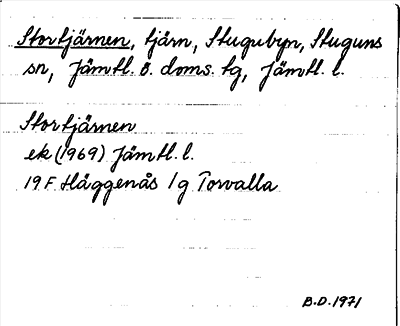 Stortjärnen, tjärn, Stugubyn, Stuguns
sn, Jämtl. ö. doms. tg, Jämtl. l.
Stortjärnen
ek (1969) Jämtl. l.
19 F Häggenås 1g Torvalla
B.D. 1971